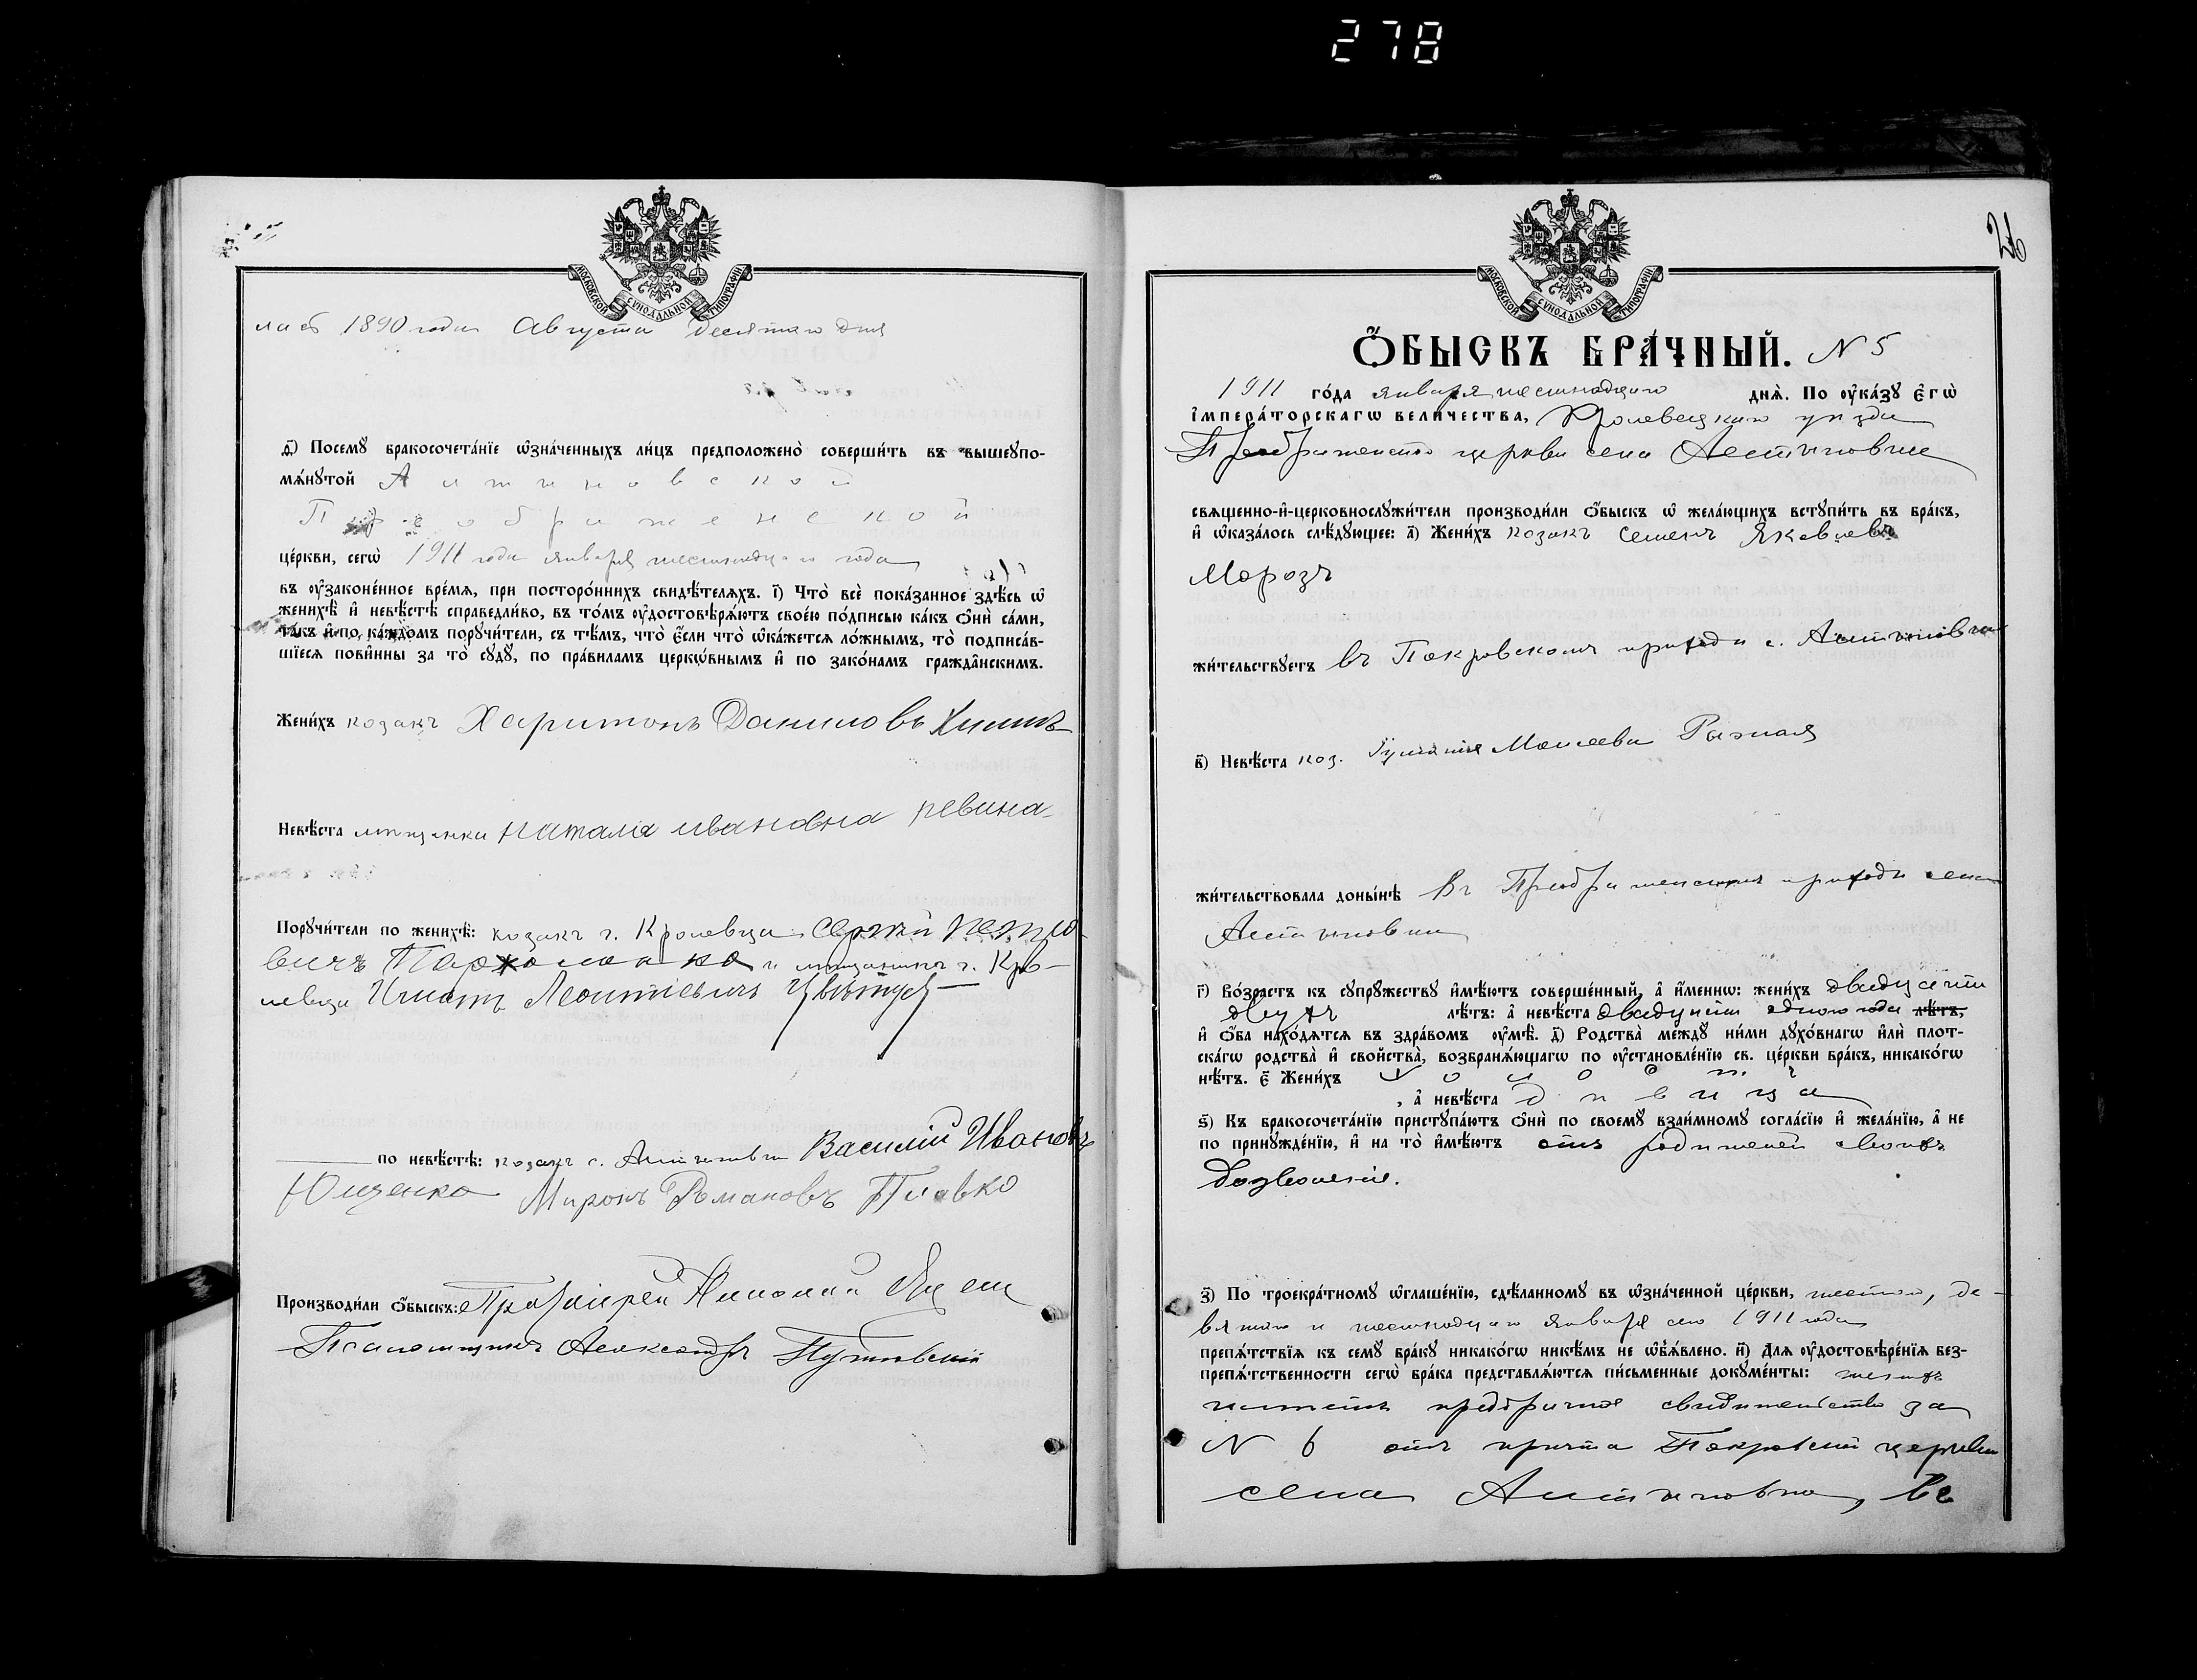 278
МОСКОВСКОЙ СУНОДАЛЬНОЙ ТИПОГРАФІИ
лась 1890 года Августа десятаго дня
д҃і) Посемꙋ̀ бракосочета́нїе ѡ҆зна́ченныхъ ли́цъ предположенѡ̀ соверши́ть въ вышеꙋпо-
мѧ́нꙋтой Алтиновской
Преображенской
це́ркви, сегѡ̀ 1911 года января шестнадцатаго года
въ ᲂу҆законе́нное вре́мѧ, при посторо́ннихъ свидѣ́телѧхъ. і҃) Что̀ всѐ пока́занное здѣ́сь ѡ҆
женихѣ̀ и҆ невѣ́стѣ справедли́во, въ то́мъ ᲂу҆достовѣрѧ́ютъ свое́ю по́дписью ка́къ ѻ҆нѝ са́ми,
та́къ и҆ по ка́ждомъ порꙋчи́тели, съ тѣ́мъ, что̀ є҆́сли что̀ ѡ҆ка́жетсѧ ло́жнымъ, то̀ подписа́в-
шїесѧ пови́нны за то̀ сꙋдꙋ̀, по пра́виламъ церкѡ́внымъ и҆ по зако́намъ гражда̑нскимъ.
Жени́хъ козакъ Харитонъ Даниловъ
Невѣ́ста мѣщанка Наталя ивановна ревина
Порꙋчи́тели по женихѣ̀: козакъ г. Кролевца Сергѣй Петро-
вичъ Пархоменко и мѣщанинъ г. Кро-
левца Игнатъ Леонтіевичъ
по невѣ́стѣ: козакъ с. Алтиновки Василій Ивановъ
Ющенко Миронъ Романовъ Плавко
Производи́ли ѻ҆́быскъ: Протоіерей Николай
Псаломщикъ Александръ Путивскій
26
МОСКОВСКОЙ СУНОДАЛЬНОЙ ТИПОГРАФІИ
Ѻ҆́БЫСКЪ БРА́ЧНЫЙ. N 5
1911 го́да января шестнадцатаго днѧ̀. По ᲂу҆ка́зꙋ Є҆гѡ̀
І҆мпера́торскагѡ вели́чества, Кролевецкаго уѣзда
Преображенской церкви села Алтыновки
свѧщенно-и҆-церковнослꙋжи́тели производи́ли ѻ҆́быскъ ѡ҆ жела́ющихъ вступи́ть въ бра́къ,
и҆ ѡ҆каза́лось слѣ́дꙋющее: а҃) Жени́хъ козакъ Семенъ Яковлевъ
Морозъ
жи́тельствꙋетъ въ Покровскомъ приходѣ с. Алтыновки
в҃) Невѣ́ста коз. Моисеева Рыжая
жи́тельствовала доны́нѣ въ Преображенскомъ приходѣ села
Алтыновки
г҃) Во́зрастъ къ сꙋпрꙋ́жествꙋ и҆мѣ́ютъ соверше́нный, а҆̀ и҆́меннѡ: жени́хъ двадцати
двухъ лѣ́тъ: а҆̀ невѣ́ста двадцати одного года лѣ́тъ,
и҆ ѻ҆́ба нахо́дѧтсѧ въ здра́вомъ ᲂу҆мѣ̀. д҃) Родства̀ междꙋ̀ ни́ми дꙋхо́внагѡ и҆лѝ плот-
ска́гѡ родства̀ и҆ сво́йства̀, возбранѧ́ющагѡ по ᲂу҆становле́нїю св. це́ркви бра́къ, никако́гѡ
нѣ́тъ. є҃ Жени́хъ холостъ
, а҆̀ невѣ́ста дѣвица
ѕ҃) Къ бракосочета́нїю пристꙋпа́ютъ ѻ҆нѝ по своемꙋ̀ взаи́мномꙋ согла́сїю и҆ жела́нїю, а҆̀ не
по принꙋжде́нїю, и҆ на то̀ и҆мѣ́ютъ отъ родителей своихъ
дозволеніе.
з҃) По троекра́тномꙋ ѡ҆глаше́нїю, сдѣ́ланномꙋ въ ѡ҆зна́ченной це́ркви, шестого, де-
вятаго и шестнадцатаго января сего 1911 года
препѧ́тствїѧ къ семꙋ̀ бра́кꙋ никако́гѡ никѣ́мъ не ѡ҆б̾ѧ́влено. и҃) Длѧ ᲂу҆достовѣре́нїѧ без-
препѧ́тственности сегѡ̀ бра́ка представлѧ́ютсѧ пи́сьменные докꙋме́нты: жениха
предбрачное свидѣтельство за
N 6 отъ причта Покровской церкви
села Алтыновки, въ